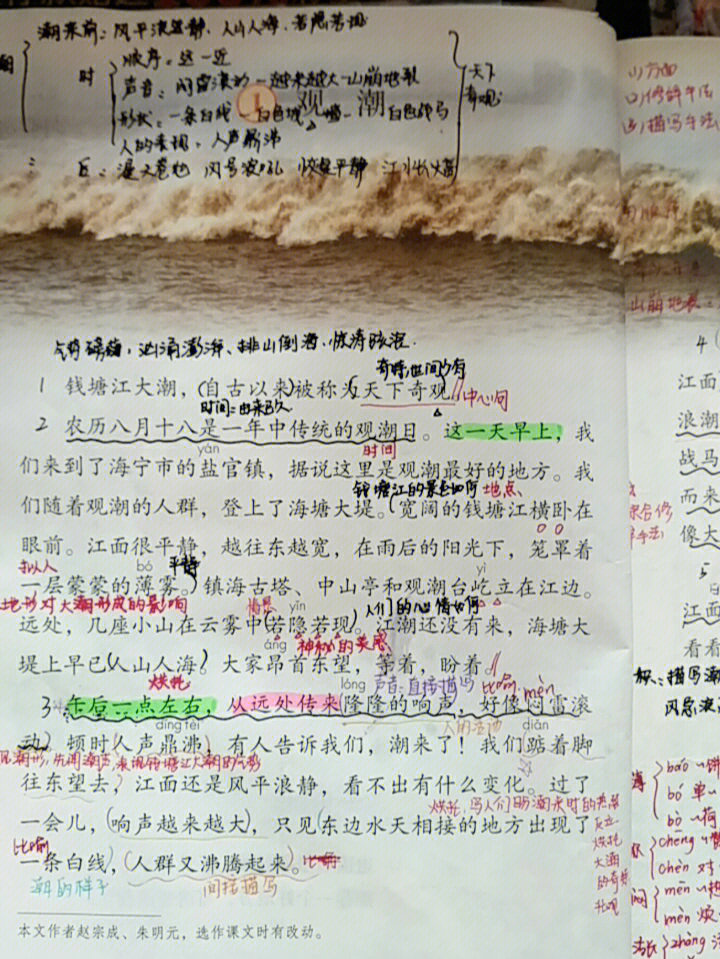 潮来前：风平浪静、人山人海、若隐若现
时 顺序：远—近
声音：闷雷滚动—越来越大—山崩地裂
形状：一条白线—白色城墙—白色战马
人的表现：人声鼎沸
天下奇观
后：漫天卷地 风号浪吼 恢复平静 江水长涨高
1 观潮
气势磅礴，汹涌澎湃、排山倒海、惊涛骇浪.
奇特，世间少有
1 钱塘江大潮，(自古以来)被称为天下奇观。
中心句
时间=由来已久
2 农历八月十八是一年中传统的观潮日。这一天早上，我
yán
时间
们来到了海宁市的盐官镇，据说这里是观潮最好的地方。我
钱塘江的景色如何 地点
们随着观潮的人群，登上了海塘大堤。(宽阔的钱塘江横卧在
眼前。江面很平静，越往东越宽，在雨后的阳光下，笼罩着
拟人 bó 平静 yì
一层蒙蒙的薄雾。)镇海古塔、中山亭和观潮台屹立在江边。
地形对大潮形成的影响 yǐn 人们的心情如何
远处，几座小山在云雾中(若隐若现)。江潮还没有来，海塘大
áng 神秘的美感
堤上早已(人山人海)。大家昂首东望，等着，盼着。
烘托 lóng 声音：直接描写 比喻 mèn
3 午后一点左右，从远处传来隆隆的响声，好像闷雷滚
dǐng fèi diàn
动。顿时(人声鼎沸)，有人告诉我们，潮来了！我们踮着脚
往东望去，江面还是风平浪静，看不出有什么变化。过了
一会儿，(响声越来越大)，只见(东边水天相接的地方出现了
比喻
一条白线)，(人群又沸腾起来。
潮的样子 间接描写
本文作者赵宗成、朱明元，选作课文时有改动。
(1)方面
(2)修辞手法
(3)描写手法
山崩地裂
4
江面
浪潮
战马
而来
像大
5
江面
看看
薄 báo
bó
bò
chēng
chèn
闷 mēn
mèn 烦
zhǎng